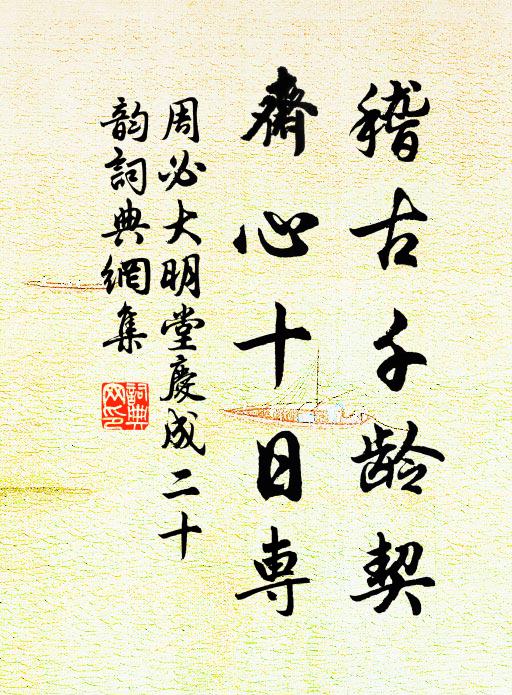 稽古千龄契
齋心十日専
周必大明堂慶成二十
韵詞典網集
詞典网印